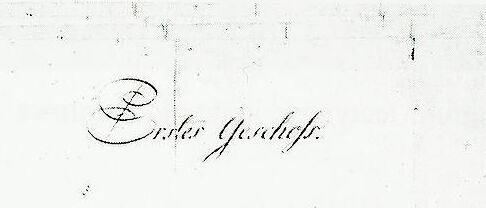 Erster Geschoß.